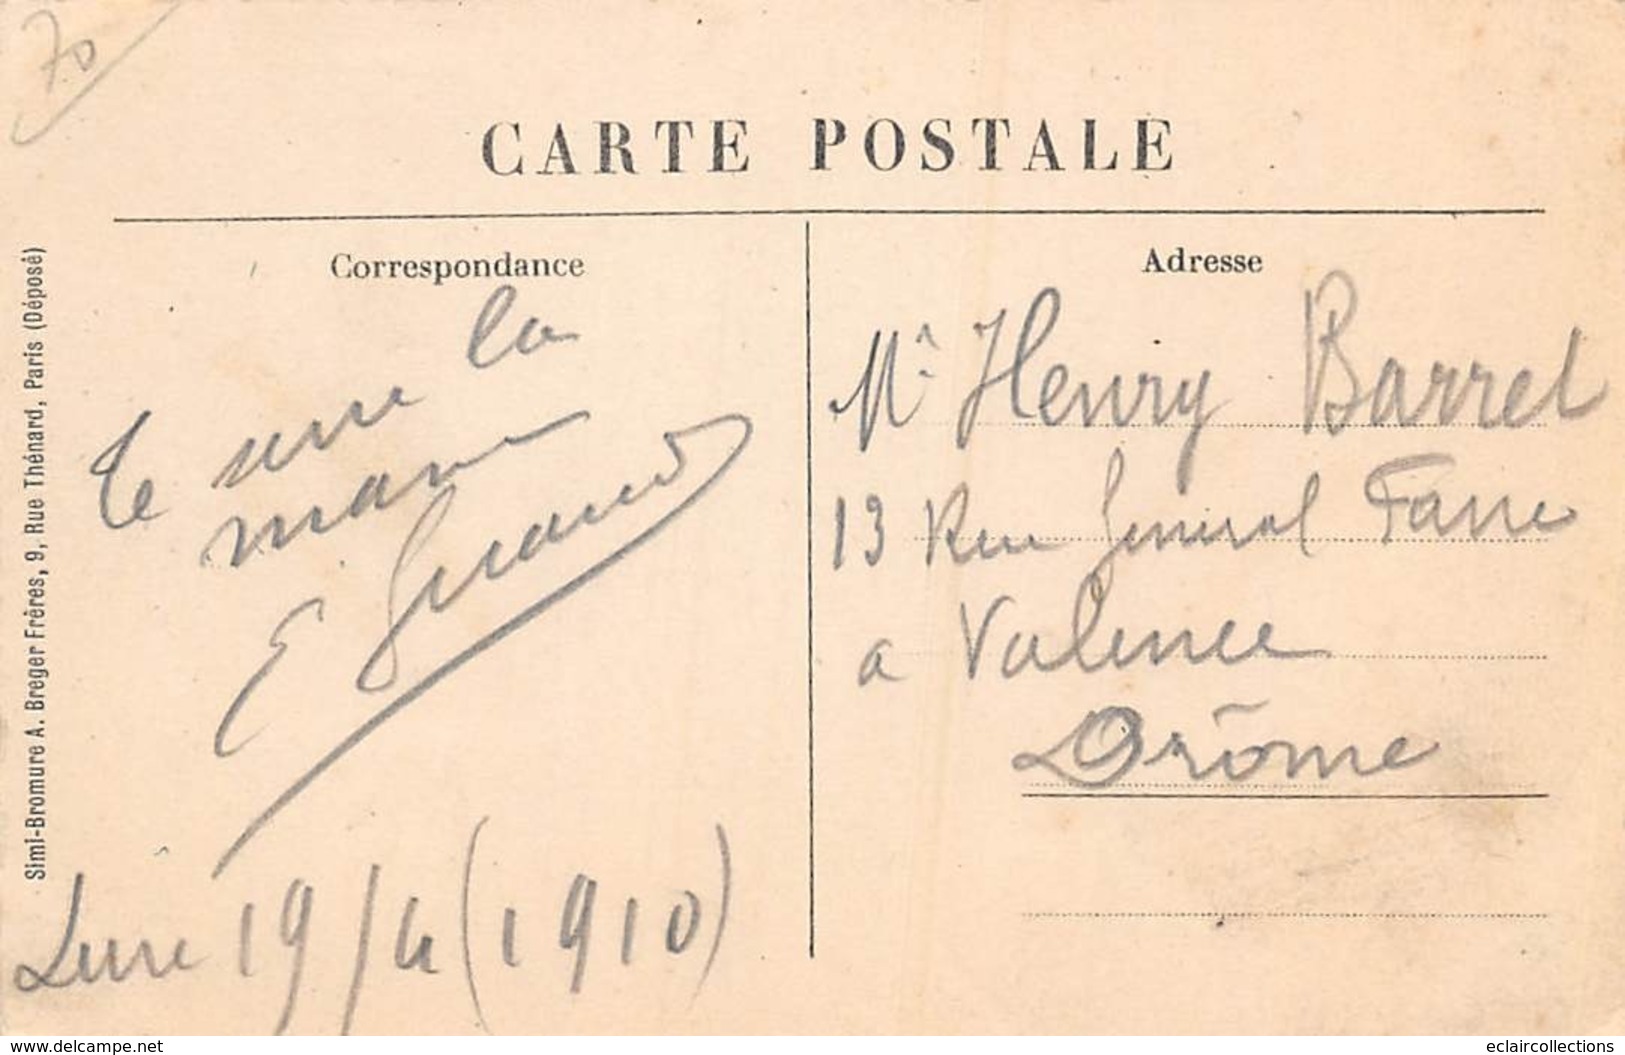 70
CARTE POSTALE
Correspondance
Te serre la
main
E
Lure 19/4 (1910)
Adresse
Mr Henry Barrel
13 Rue Général Farre
a Valence
Drôme
Simi-Bromure A. Breger Frères, 9, Rue Thénard, Paris (Déposé)
www.delcampe.net
eclaircollections